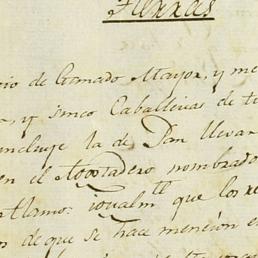 Tierras
io de Ganado Mayor, y me
a, y sinco Caballerias de ti
incluye la de Pan llevar
en el Agostadero nombrado
tlamo: igualmte que los re
de que se hace mención e